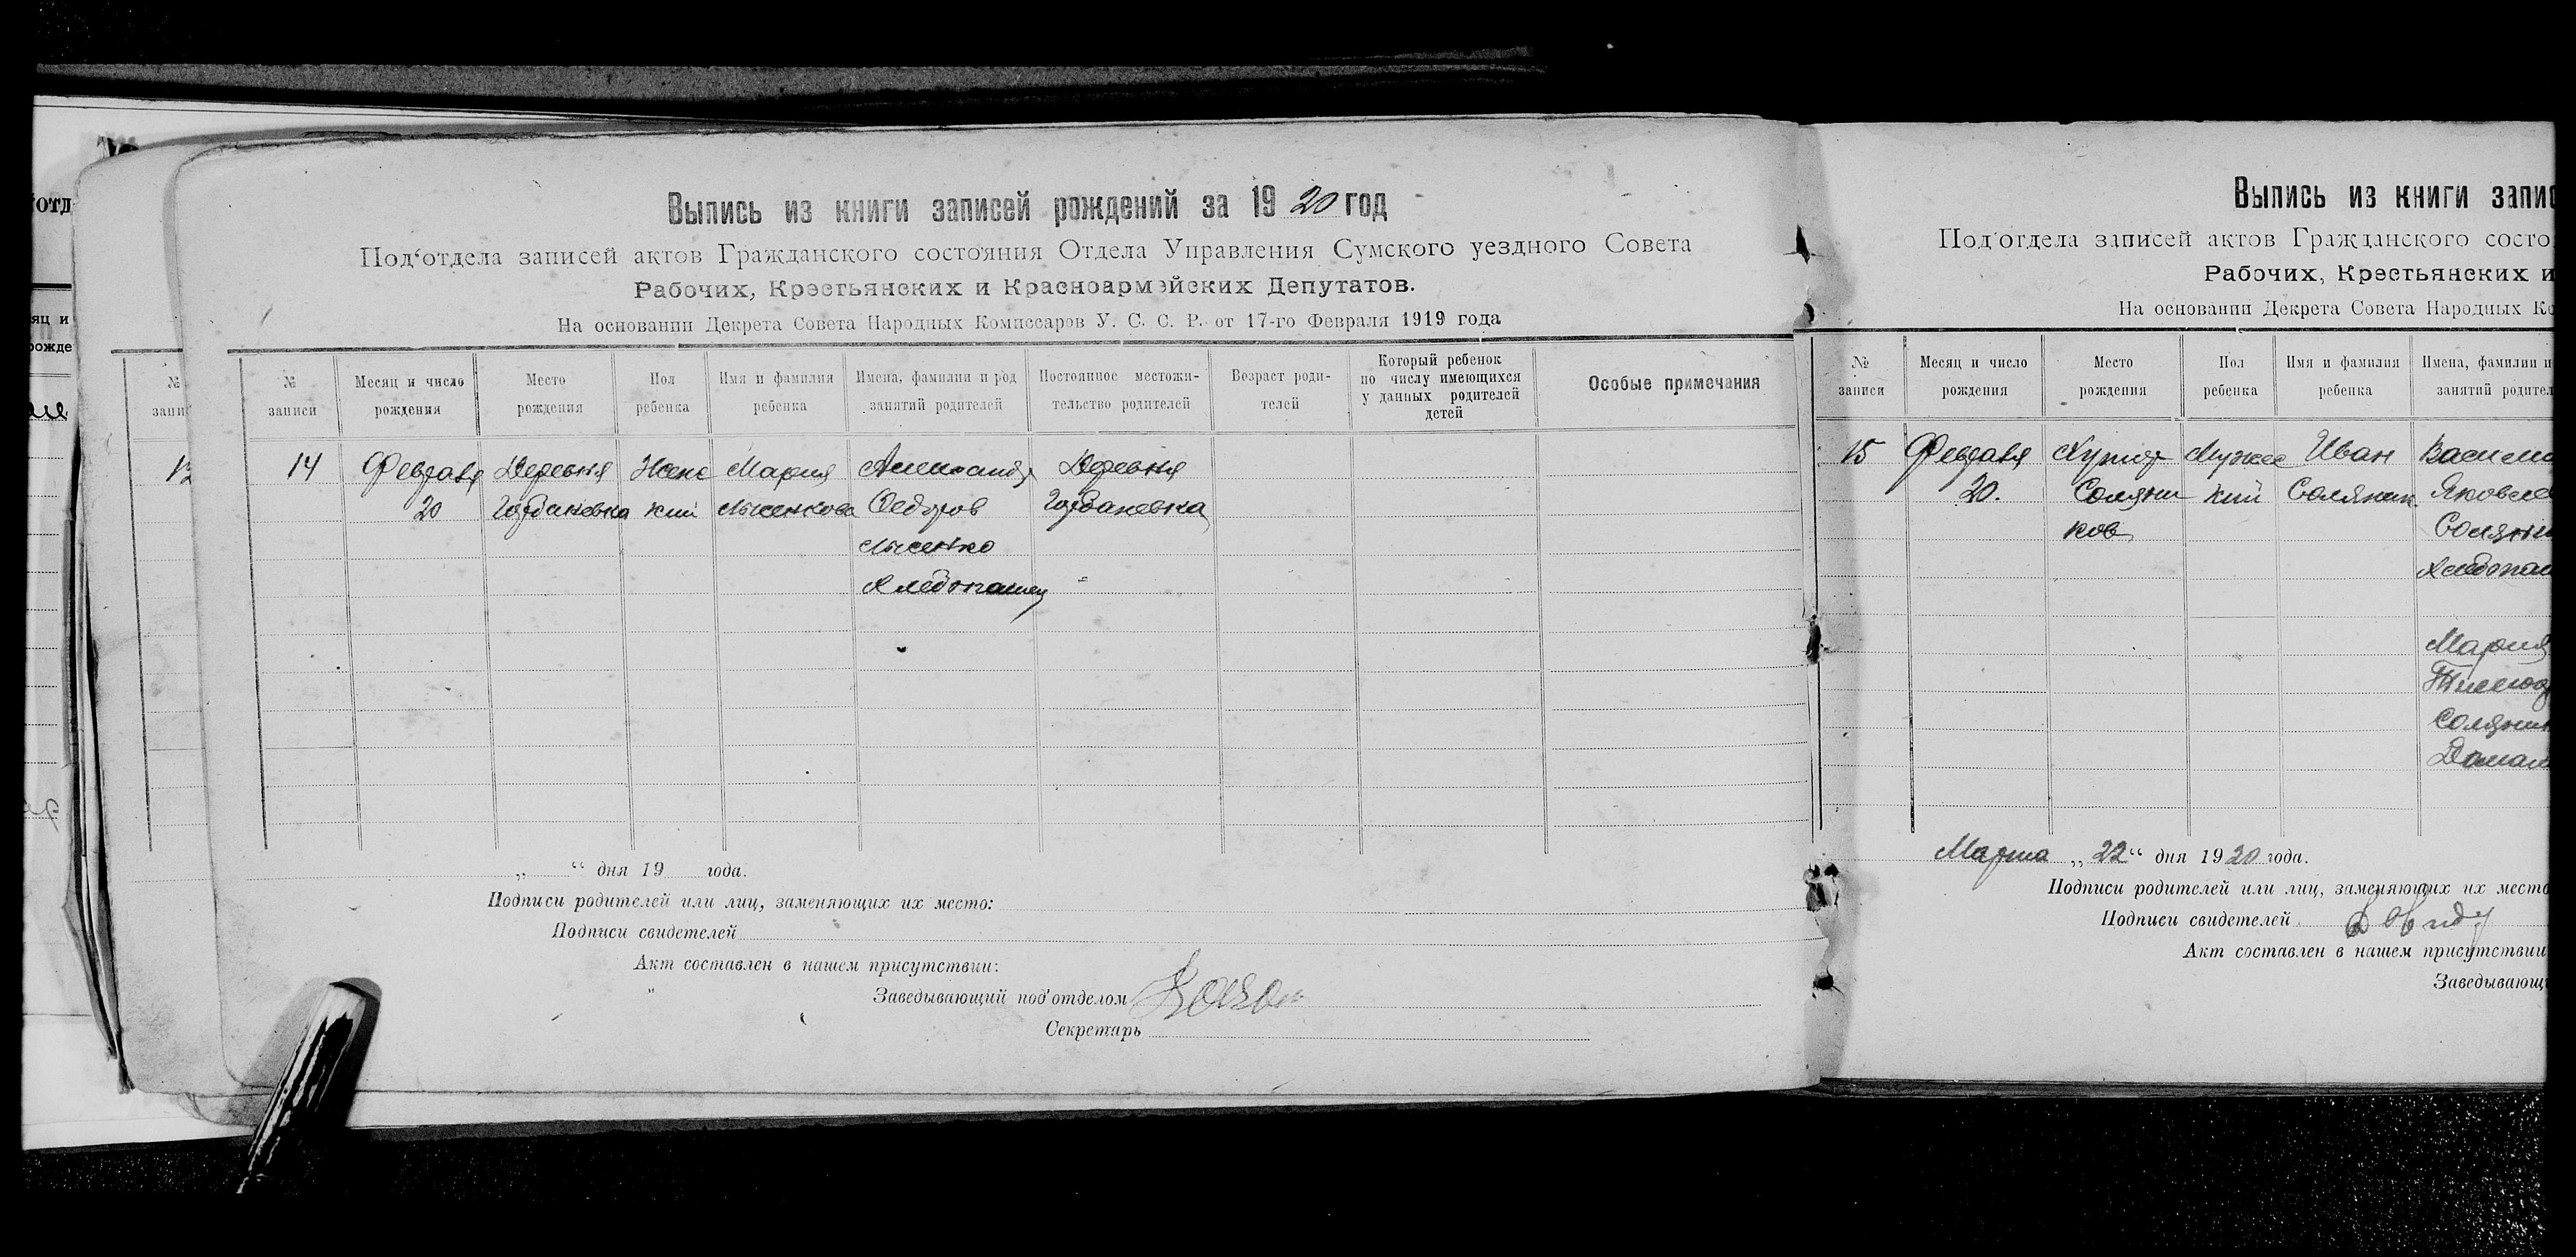 Выпись из книги записей рождений за 1920 год
Под‘отдела записей актов Гражданского состояния Отдела Управления Сумского уездного Совета
Рабочих, Крестьянских и Красноармейских Депутатов.
На основании Декрета Совета Народных Комиссаров У. С. С. Р. от 17-го Февраля 1919 года
№ записи
Месяц и число рождения
Место рождения
Пол ребенка
Имя и фамилия ребенка
Имена, фамилии и род занятий родителей
Постоянное местожи-
тельство родителей
Возраст роди-
телей
Который ребенок
по числу имеющихся
у данных родителей
детей
Особые примечания
14 Февраля Деревня Женс Мария Александр Деревня
20 кий Лысенкова Федоров
Лысенко
Хлебопашец
„ “ дня 19 года.
Подписи родителей или лиц, заменяющих их место:
Подписи свидетелей
Акт составлен в нашем присутствии:
Заведывающий под‘отделом
Секретарь
Выпись из книги запис
Под‘отдела записей актов Гражданского состо
Рабочих, Крестьянских и
На основании Декрета Совета Народных Ко
№ записи
Месяц и число рождения
Место рождения
Пол ребенка
Имя и фамилия ребенка
Имена, фамилии и
занятий родител
15 Февраля Хутор Мужес Иван Васили
20. Соляни кий Соляник Яковле
ков Соляни
Хлебопаш
Мария
Тимоф
Соляни
Домаш
Марта „22“ дня 1920 года.
Подписи родителей или лиц, заменяющих их место
Подписи свидетелей
Акт составлен в нашем присутствии
Заведывающ